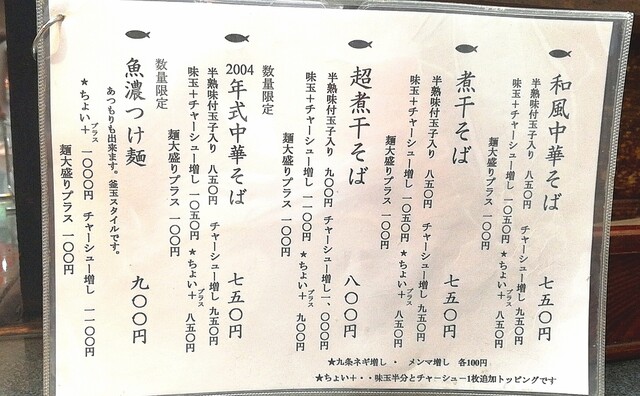 和風中華そば 七五〇円
半熟味付玉子入り 八五〇円 チャーシュー増し 九五〇円
味玉+チャーシュー増し 一〇五〇円 ★ちょい+プラス 八五〇円
麺大盛りプラス 一〇〇円
煮干そば 七五〇円
半熟味付玉子入り 八五〇円 チャーシュー増し 九五〇円
味玉+チャーシュー増し 一〇五〇円 ★ちょい+プラス 八五〇円
麺大盛りプラス 一〇〇円
超煮干そば 八〇〇円
半熟味付玉子入り 九〇〇円 チャーシュー増し 一、〇〇〇円
味玉+チャーシュー増し 一一〇〇円 ★ちょい+プラス 九〇〇円
麺大盛りプラス 一〇〇円
数量限定
2004年式中華そば 七五〇円
半熟味付玉子入り 八五〇円 チャーシュー増し 九五〇円
味玉+チャーシュー増し 一〇五〇円 ★ちょい+プラス 八五〇円
麺大盛りプラス 一〇〇円
数量限定
魚濃つけ麺 九〇〇円
あつもりも出来ます。釜玉スタイルです。
麺大盛りプラス 一〇〇円
★ちょい+プラス 一〇〇〇円 チャーシュー増し 一一〇〇円
★九条ネギ増し ・ メンマ増し 各100円
★ちょい+・・味玉半分とチャーシュー1枚追加トッピングです